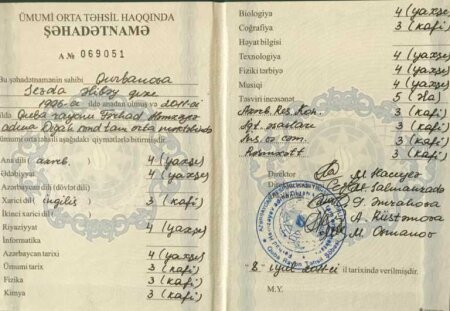 ÜMUMİ ORTA TƏHSİL HAQQINDA
ŞƏHADƏTNAMƏ
A № 069051
Bu şəhadətnamənin sahibi Qurbanova
Əlibəy qızı
1996-cı ildə anadan olmuş və 2011-ci
ildə Quba rayonu Fərhad
adına kənd tam orta məktəbində
aşağıdakı qiymətlərlə bitirmişdir.
Ana dili ( azərb. ) 4 (yaxşı)
Ədəbiyyat 4 (yaxşı)
Azərbaycan dili (dövlət dili)
Xarici dil ( ingilis ) 3 (kafi)
İkinci xarici dil ( )
Riyaziyyat 4 (yaxşı)
İnformatika
Azərbaycan tarixi 4 (yaxşı)
Ümumi tarix 3 (kafi)
Fizika 3 (kafi)
Kimya 3 (kafi)
Biologiya 4 (yaxşı)
Coğrafiya 3 (kafi)
Həyat bilgisi
Texnologiya 4 (yaxşı)
Fiziki tərbiyə 4 (yaxşı)
Musiqi 4 (yaxşı)
Təsviri incəsənət 5 (əla)
Azərb. Res. Kon. 3 (kafi)
İqt. əsasları 3 (kafi)
İns. və cəm. 3 (kafi)
3 (kafi)
Direktor M. Hacıyev
Direktor Salmanzadə
İmrahova
A. Rüstəmova
M. Osmanov
"8" iyul 2011-ci il tarixində verilmişdir.
M.Y.